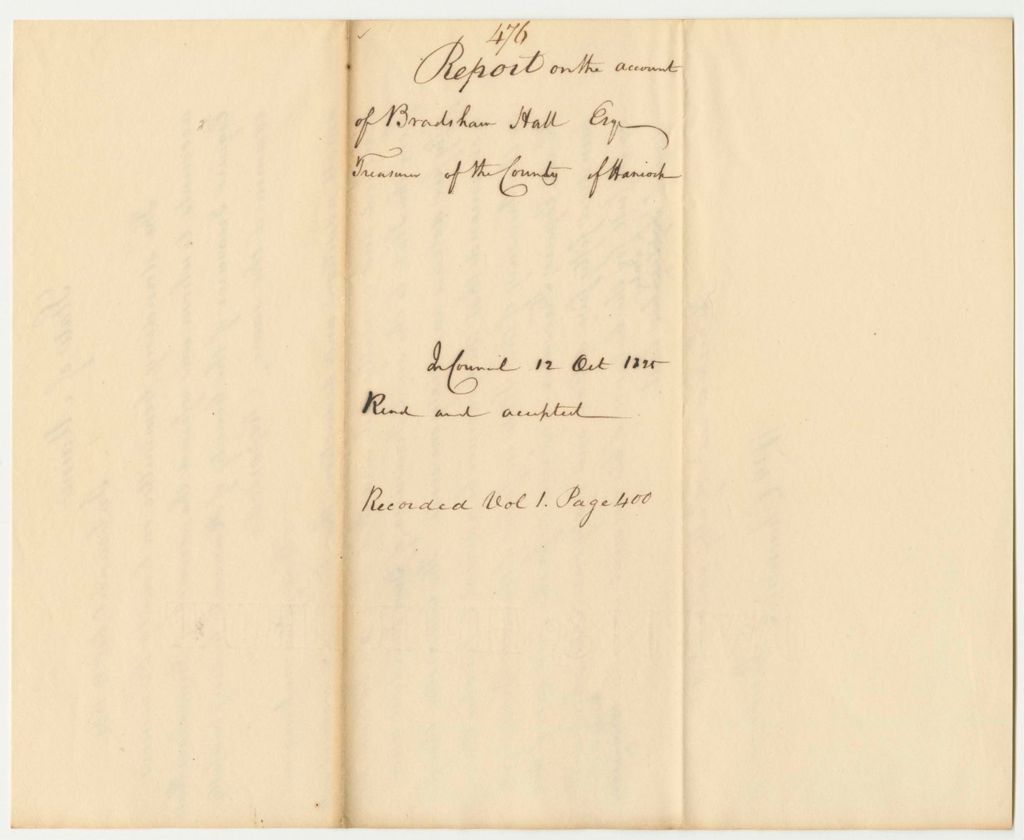 476
Report on the account
of Bradshaw Hall Esqr
Treasurer of the County of Hancock
In Council 12 Oct 1825
Read and accepted
Recorded Vol 1. Page 400